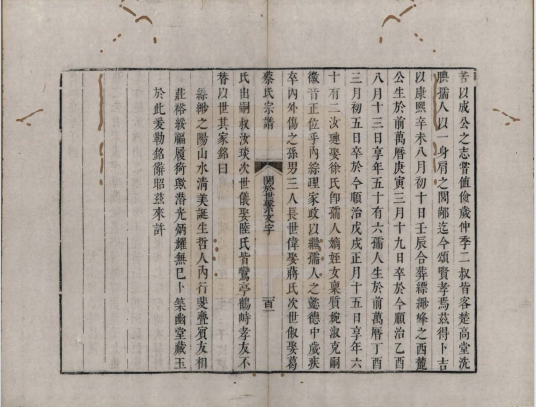 苦以成公之志嘗值儉歲仲季二叔皆客楚高堂洗
腆孺人以一身肩之閭鄰迄今頌賢孝焉茲得卜吉
以康熙辛未八月初十日壬辰合葬縹緲峰之西麓
公生於前萬曆庚寅三月十九日卒於今順治乙酉
八月十三日享年五十有六孺人生於前萬曆丁酉
三月初五日卒於今順治戊戌正月十五日享年六
十有二汝璉娶徐氏卽孺人嫡姪女稟質婉淑克嗣
徽音正位乎內綜理家政以繼孺人之懿德中歲疾
卒內外傷之孫男三人長世偉娶蔣氏次世俶娶葛
蔡氏宗譜
關於世系文字
百一
氏出嗣叔汝琰次世儀娶陸氏皆鸞停鶴峙孝友不
替以世其家銘曰
縹緲之陽山水清美誕生哲人內行斐亹賓友相
莊裕綏福履猗歟潛光炳燿無已卜築幽堂藏玉
於此爰勒銘辭昭茲來許